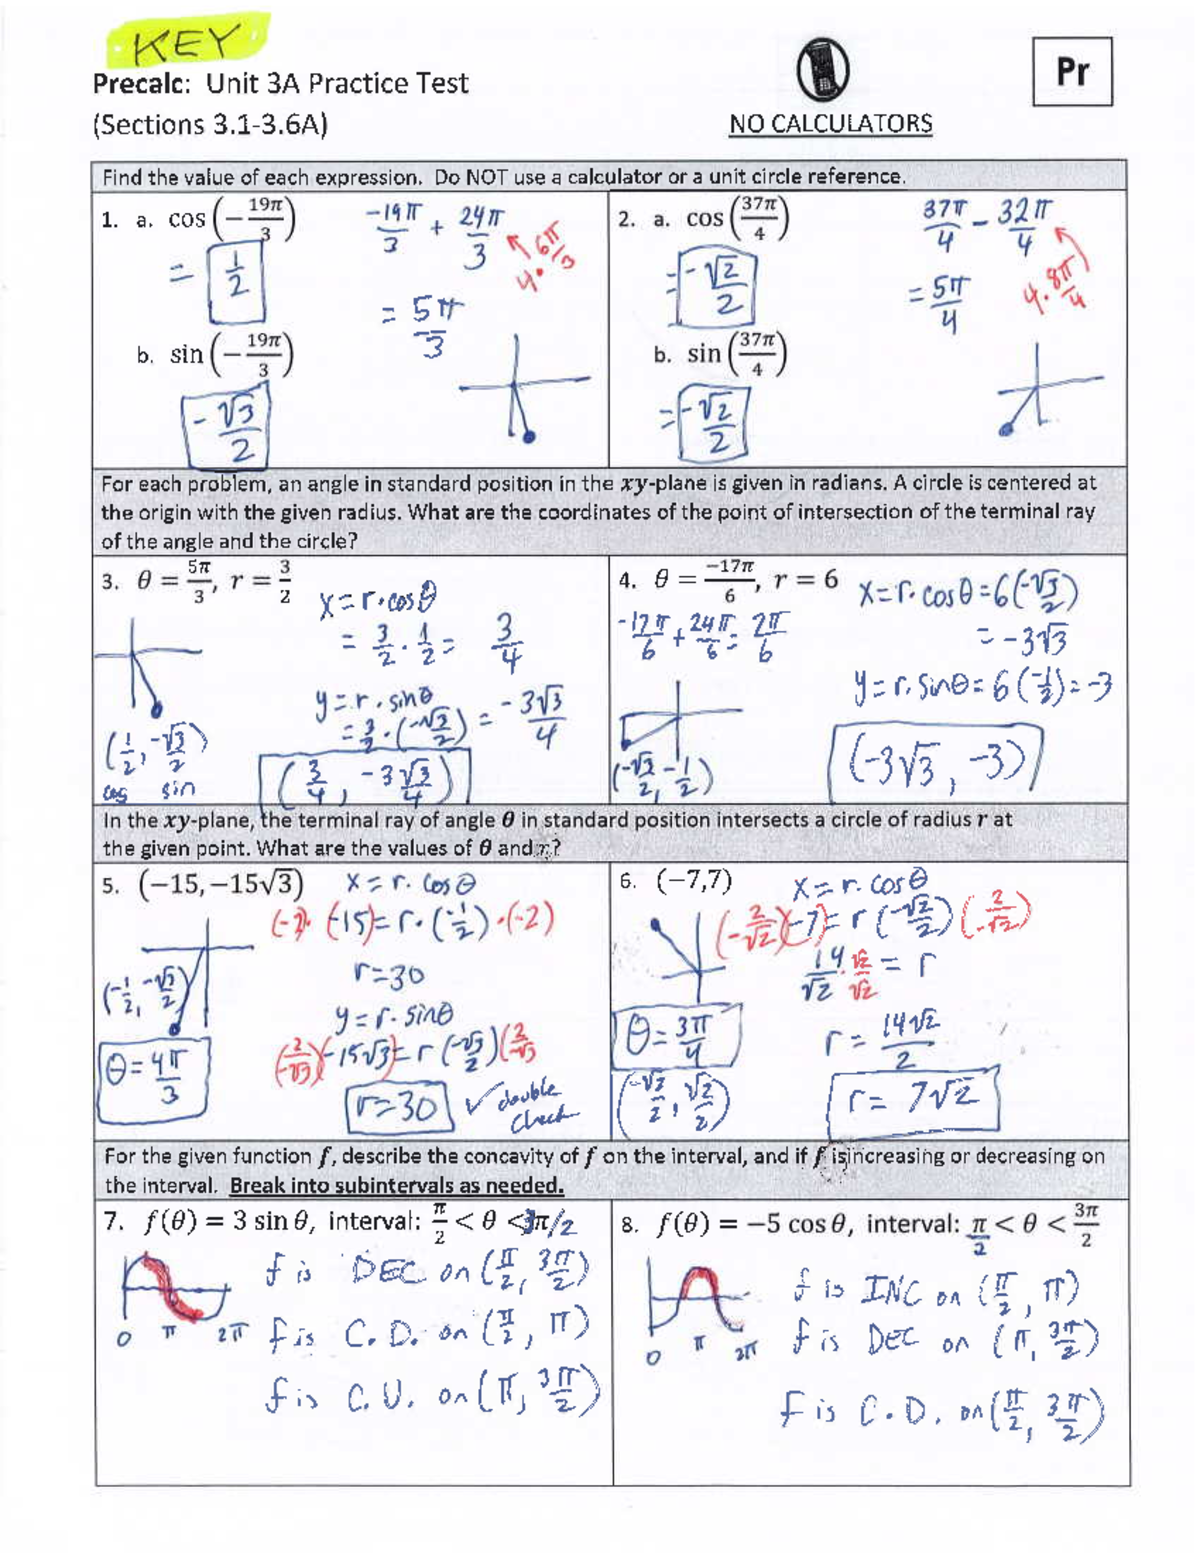 KEY
Precalc: Unit 3A Practice Test
(Sections 3.1-3.6A)
NO CALCULATORS
Pr
Find the value of each expression. Do NOT use a calculator or a unit circle reference.
1. a. cos(−19π/3)
= 1/2
−19π/3 + 24π/3
4·6π/3
= 5π/3
b. sin(−19π/3)
−√3/2
2. a. cos(37π/4)
= −√2/2
37π/4 − 32π/4
4·8π/4
= 5π/4
b. sin(37π/4)
= −√2/2
For each problem, an angle in standard position in the xy-plane is given in radians. A circle is centered at
the origin with the given radius. What are the coordinates of the point of intersection of the terminal ray
of the angle and the circle?
3. θ = 5π/3, r = 3/2
x = r·cosθ
= 3/2 · 1/2 = 3/4
y = r·sinθ
= 3/2·(−√3/2) = −3√3/4
(1/2, −√3/2)
cos sin
(3/4, −3√3/4)
4. θ = −17π/6, r = 6
x = r·cosθ = 6(−√3/2)
= −3√3
−17π/6 + 24π/6 = 7π/6
y = r·sinθ = 6(−1/2) = −3
(−√3/2, −1/2)
(−3√3, −3)
In the xy-plane, the terminal ray of angle θ in standard position intersects a circle of radius r at
the given point. What are the values of θ and r?
5. (−15, −15√3)
x = r·cosθ
(−2)·(−15) = r·(−1/2)·(−2)
r = 30
(−1/2, −√3/2)
y = r·sinθ
(2/−√3)(−15√3) = r(−√3/2)(2/−√3)
θ = 4π/3
r = 30
✓ double
check
6. (−7,7)
x = r·cosθ
(−2/√2)(−7) = r(−√2/2)(2/−√2)
14/√2 · √2/√2 = r
θ = 3π/4
r = 14√2/2
(−√2/2, √2/2)
r = 7√2
For the given function f, describe the concavity of f on the interval, and if f is increasing or decreasing on
the interval. Break into subintervals as needed.
7. f(θ) = 3 sin θ, interval: π/2 < θ < 3π/2
f is DEC on (π/2, 3π/2)
0 π 2π
f is C.D. on (π/2, π)
f is C.U. on (π, 3π/2)
8. f(θ) = −5 cos θ, interval: π/2 < θ < 3π/2
f is INC on (π/2, π)
0 π 2π
f is DEC on (π, 3π/2)
f is C.D. on (π/2, 3π/2)